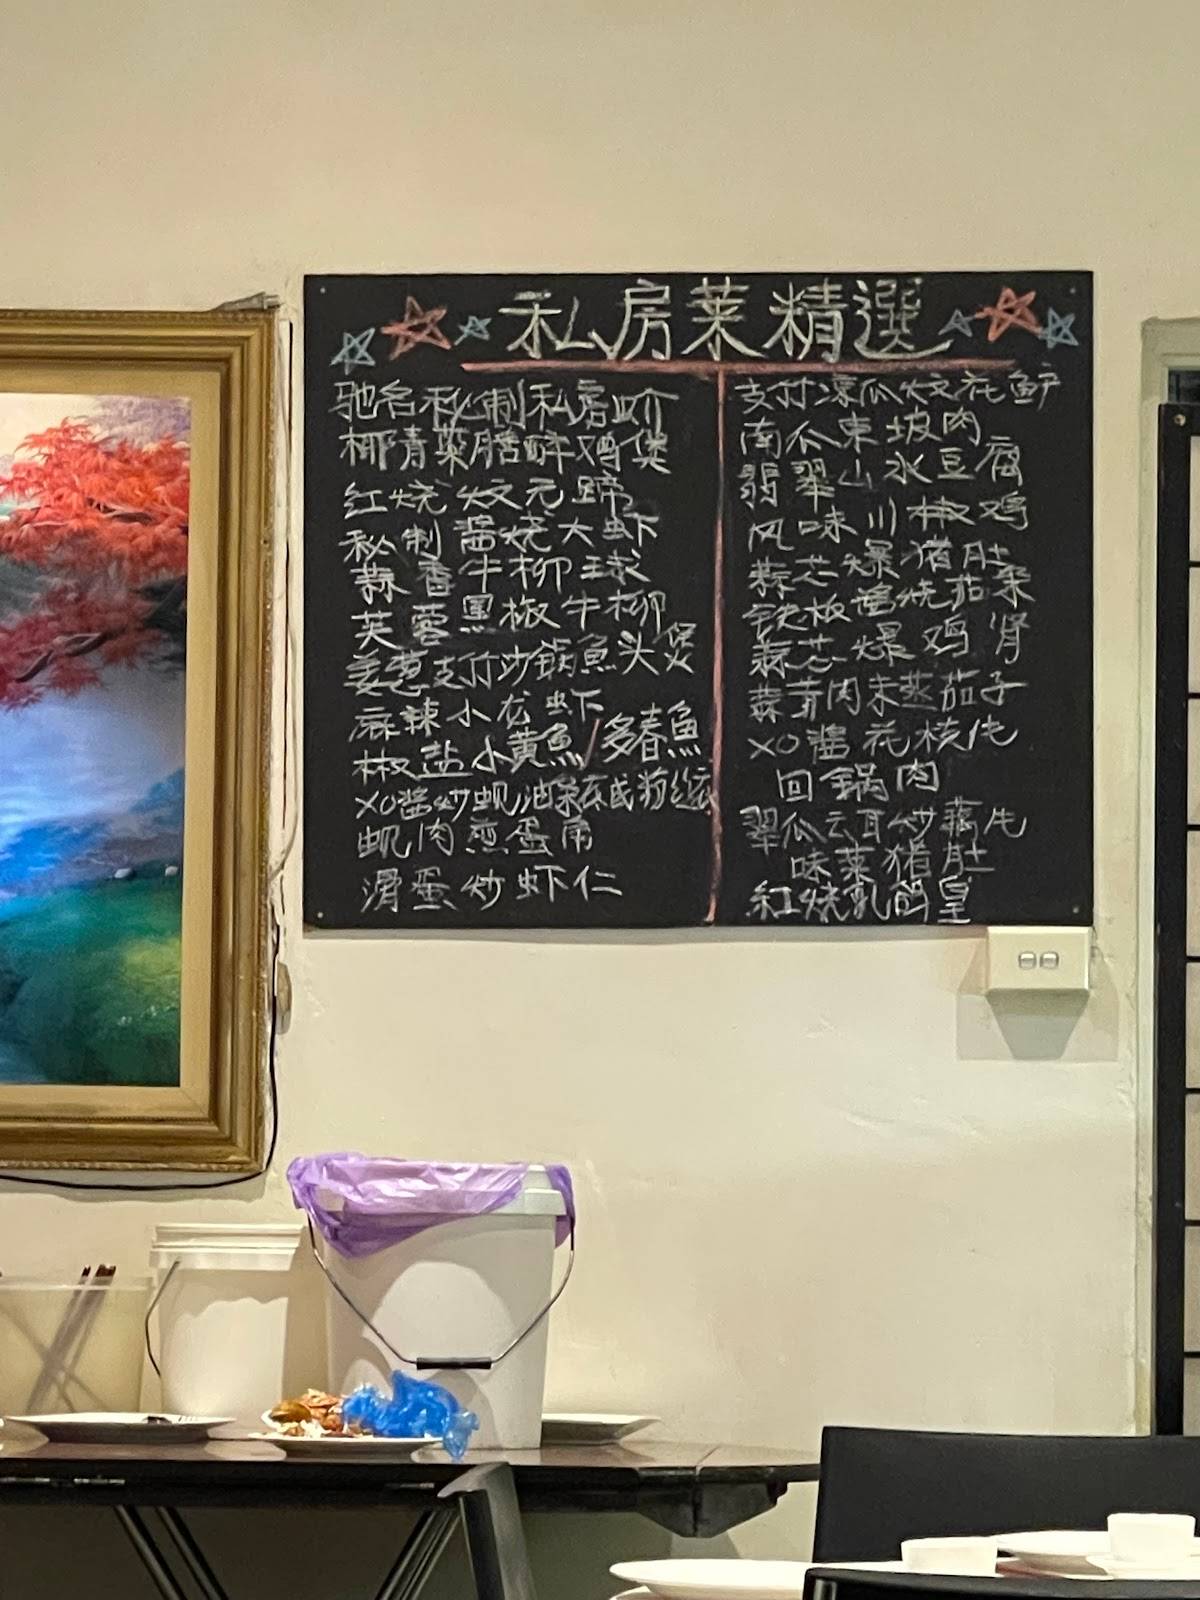 私房菜精選
驰名秘制私房蚧
椰青菜胆醉鸡煲
红烧炆元蹄
秘制醬烧大虾
蒜香牛柳球
芙蓉黑椒牛柳
姜葱支竹沙锅魚头煲
麻辣小龙虾
椒盐小黄魚/多春魚
XO醬炒蚬 油条 或粉丝
蚬肉煎蛋角
滑蛋炒虾仁
支竹凉瓜炆花魚
南瓜東坡肉
翡翠山水豆腐
风味川椒鸡
蒜芯爆猪肚
铁板醬烧茄
蒜芯爆鸡肾
蒜蓉肉未蒸茄子
XO醬花枝片
回锅肉
翠瓜云耳炒藕片
味菜猪肚
紅烧乳鸽皇